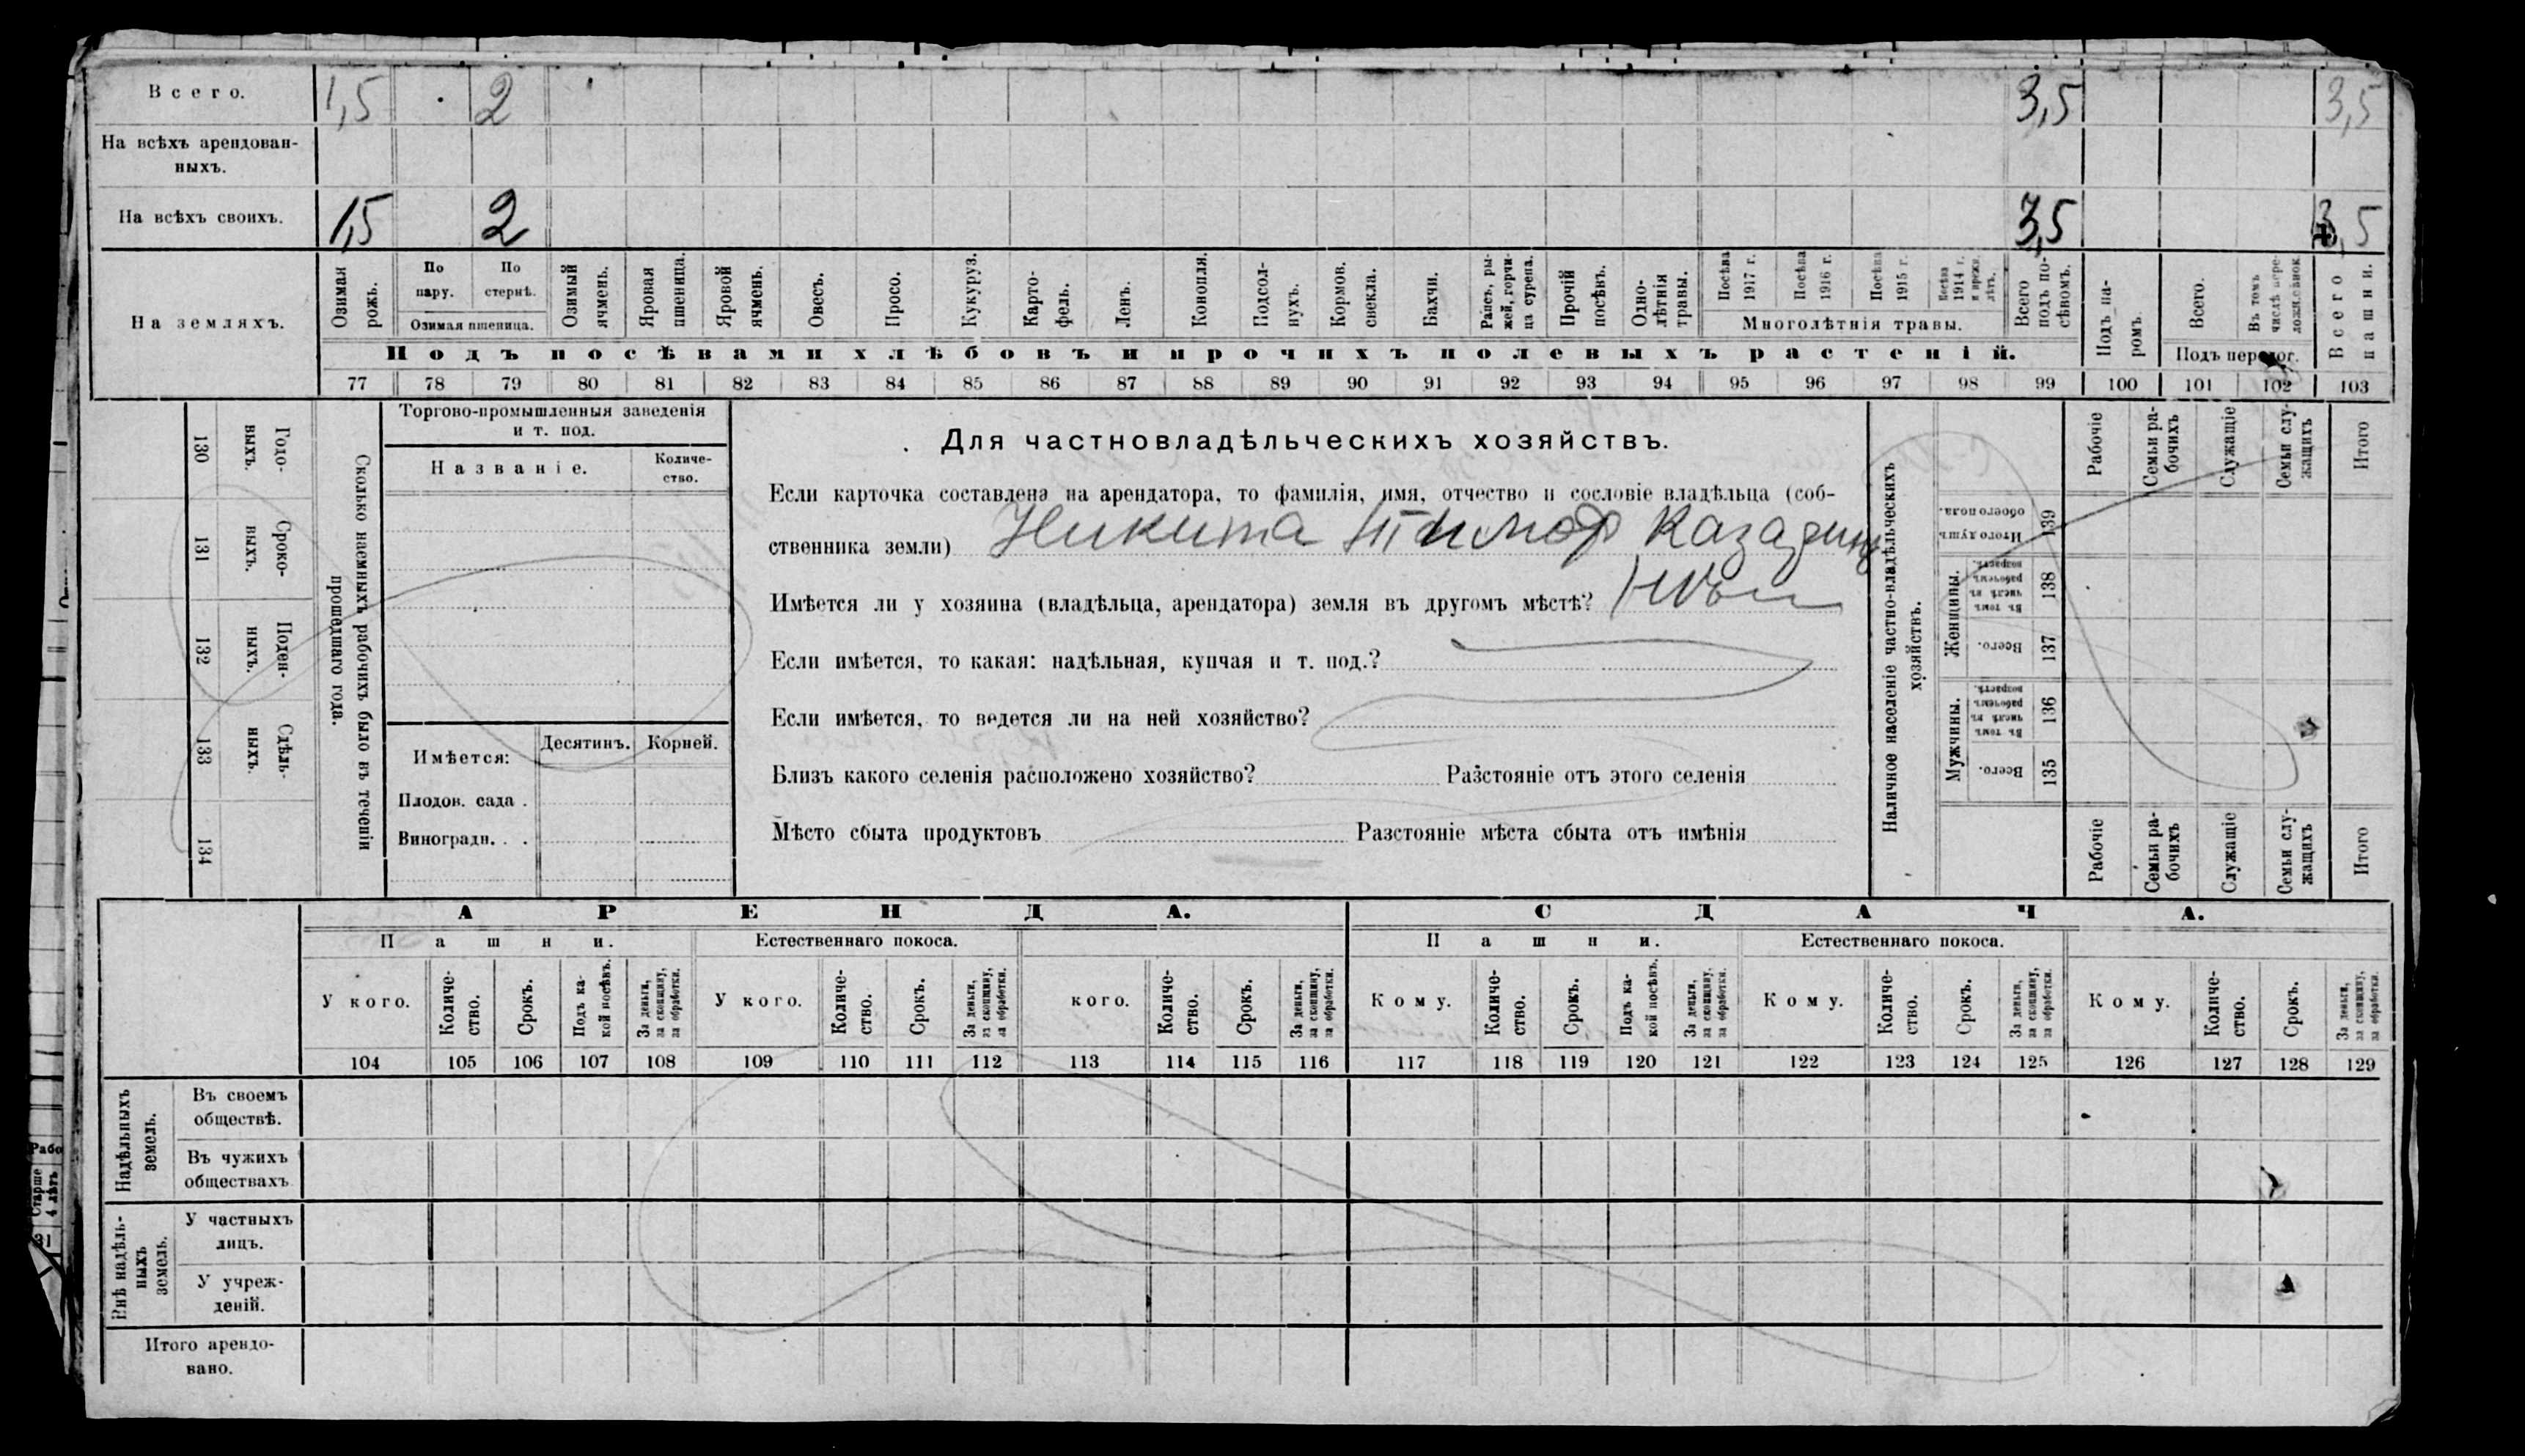 Всего. 1,5 2 3,5 3,5
На всѣхъ арендован-
ныхъ.
На всѣхъ своихъ. 1,5 2 3,5 3,5
На земляхъ.
Озимая рожь.
По пару.
По стернѣ.
Озимая пшеница.
Озимый ячмень.
Яровая пшеница.
Яровой ячмень.
Овесъ.
Просо.
Кукуруз.
Карто-
фель.
Ленъ.
Конопля.
Подсол-
нухъ.
Кормов. свекла.
Бахчи.
Рапсъ, ры-
жей, горчи-
ца сурепа.
Прочій посѣвъ.
Одно-
лѣтнія травы.
Посѣва 1917 г.
Посѣва 1916 г.
Посѣва 1915 г.
Посѣва 1914 г. и прежн. лѣтъ.
Многолѣтнія травы.
Всего подъ по-
сѣвомъ.
Подъ па-
ромъ.
Всего.
Въ томъ числѣ
Подъ перелог.
Всего пашни.
Подъ посѣвами хлѣбовъ и прочихъ полевыхъ растеній.
77 78 79 80 81 82 83 84 85 86 87 88 89 90 91 92 93 94 95 96 97 98 99 100 101 102 103
Сколько наемныхъ рабочихъ было въ теченіи
прошедшаго года.
Годо-
выхъ.
130
Сроко-
ныхъ.
131
Поден-
ныхъ.
132
Сдѣль-
ныхъ.
133
134
Торгово-промышленныя заведенія
и т. под.
Названіе.
Количе-
ство.
Имѣется: Десятинъ. Корней.
Плодов. сада .
Виноградн. . .
Для частновладѣльческихъ хозяйствъ.
Если карточка составлена на арендатора, то фамилія, имя, отчество и сословіе владѣльца (соб-
ственника земли) Никита Тимоф
Имѣется ли у хозяина (владѣльца, арендатора) земля въ другомъ мѣстѣ? Нѣт
Если имѣется, то какая: надѣльная, купчая и т. под.?
Если имѣется, то ведется ли на ней хозяйство?
Близъ какого селенія расположено хозяйство? Разстояніе отъ этого селенія
Мѣсто сбыта продуктовъ Разстояніе мѣста сбыта отъ имѣнія
Наличное населеніе частно-владѣльческихъ
хозяйствъ.
Мужчины.
Всего.
135
Въ томъ числѣ въ рабочемъ возрастѣ.
136
Женщины.
Всего.
137
Въ томъ числѣ въ рабочемъ возрастѣ.
138
Итого душъ обоего пола.
139
Рабочіе
Семьи ра-
бочихъ
Служащіе
Семьи слу-
жащихъ
Итого
Рабочіе
Семьи ра-
бочихъ
Служащіе
Семьи слу-
жащихъ
Итого
АРЕНДА. СДАЧА.
Пашни. Естественнаго покоса. Пашни. Естественнаго покоса.
У кого.
Количе-
ство.
Срокъ.
Подъ ка-
кой посѣвъ.
За деньги,
за скопщину,
за обработки.
У кого.
Количе-
ство.
Срокъ.
За деньги,
за скопщину,
за обработки.
кого.
Количе-
ство.
Срокъ.
За деньги,
за скопщину,
за обработки.
Кому.
Количе-
ство.
Срокъ.
Подъ ка-
кой посѣвъ.
За деньги,
за скопщину,
за обработки.
Кому.
Количе-
ство.
Срокъ.
За деньги,
за скопщину,
за обработки.
Кому.
Количе-
ство.
Срокъ.
За деньги,
за скопщину,
за обработки.
104 105 106 107 108 109 110 111 112 113 114 115 116 117 118 119 120 121 122 123 124 125 126 127 128 129
Надѣльныхъ
земель.
Въ своемъ
обществѣ.
Въ чужихъ
обществахъ
Внѣ надѣль-
ныхъ
земель.
У частныхъ
лицъ.
У учреж-
деній.
Итого арендо-
вано.
Рабо
Старше
4 лѣтъ
31